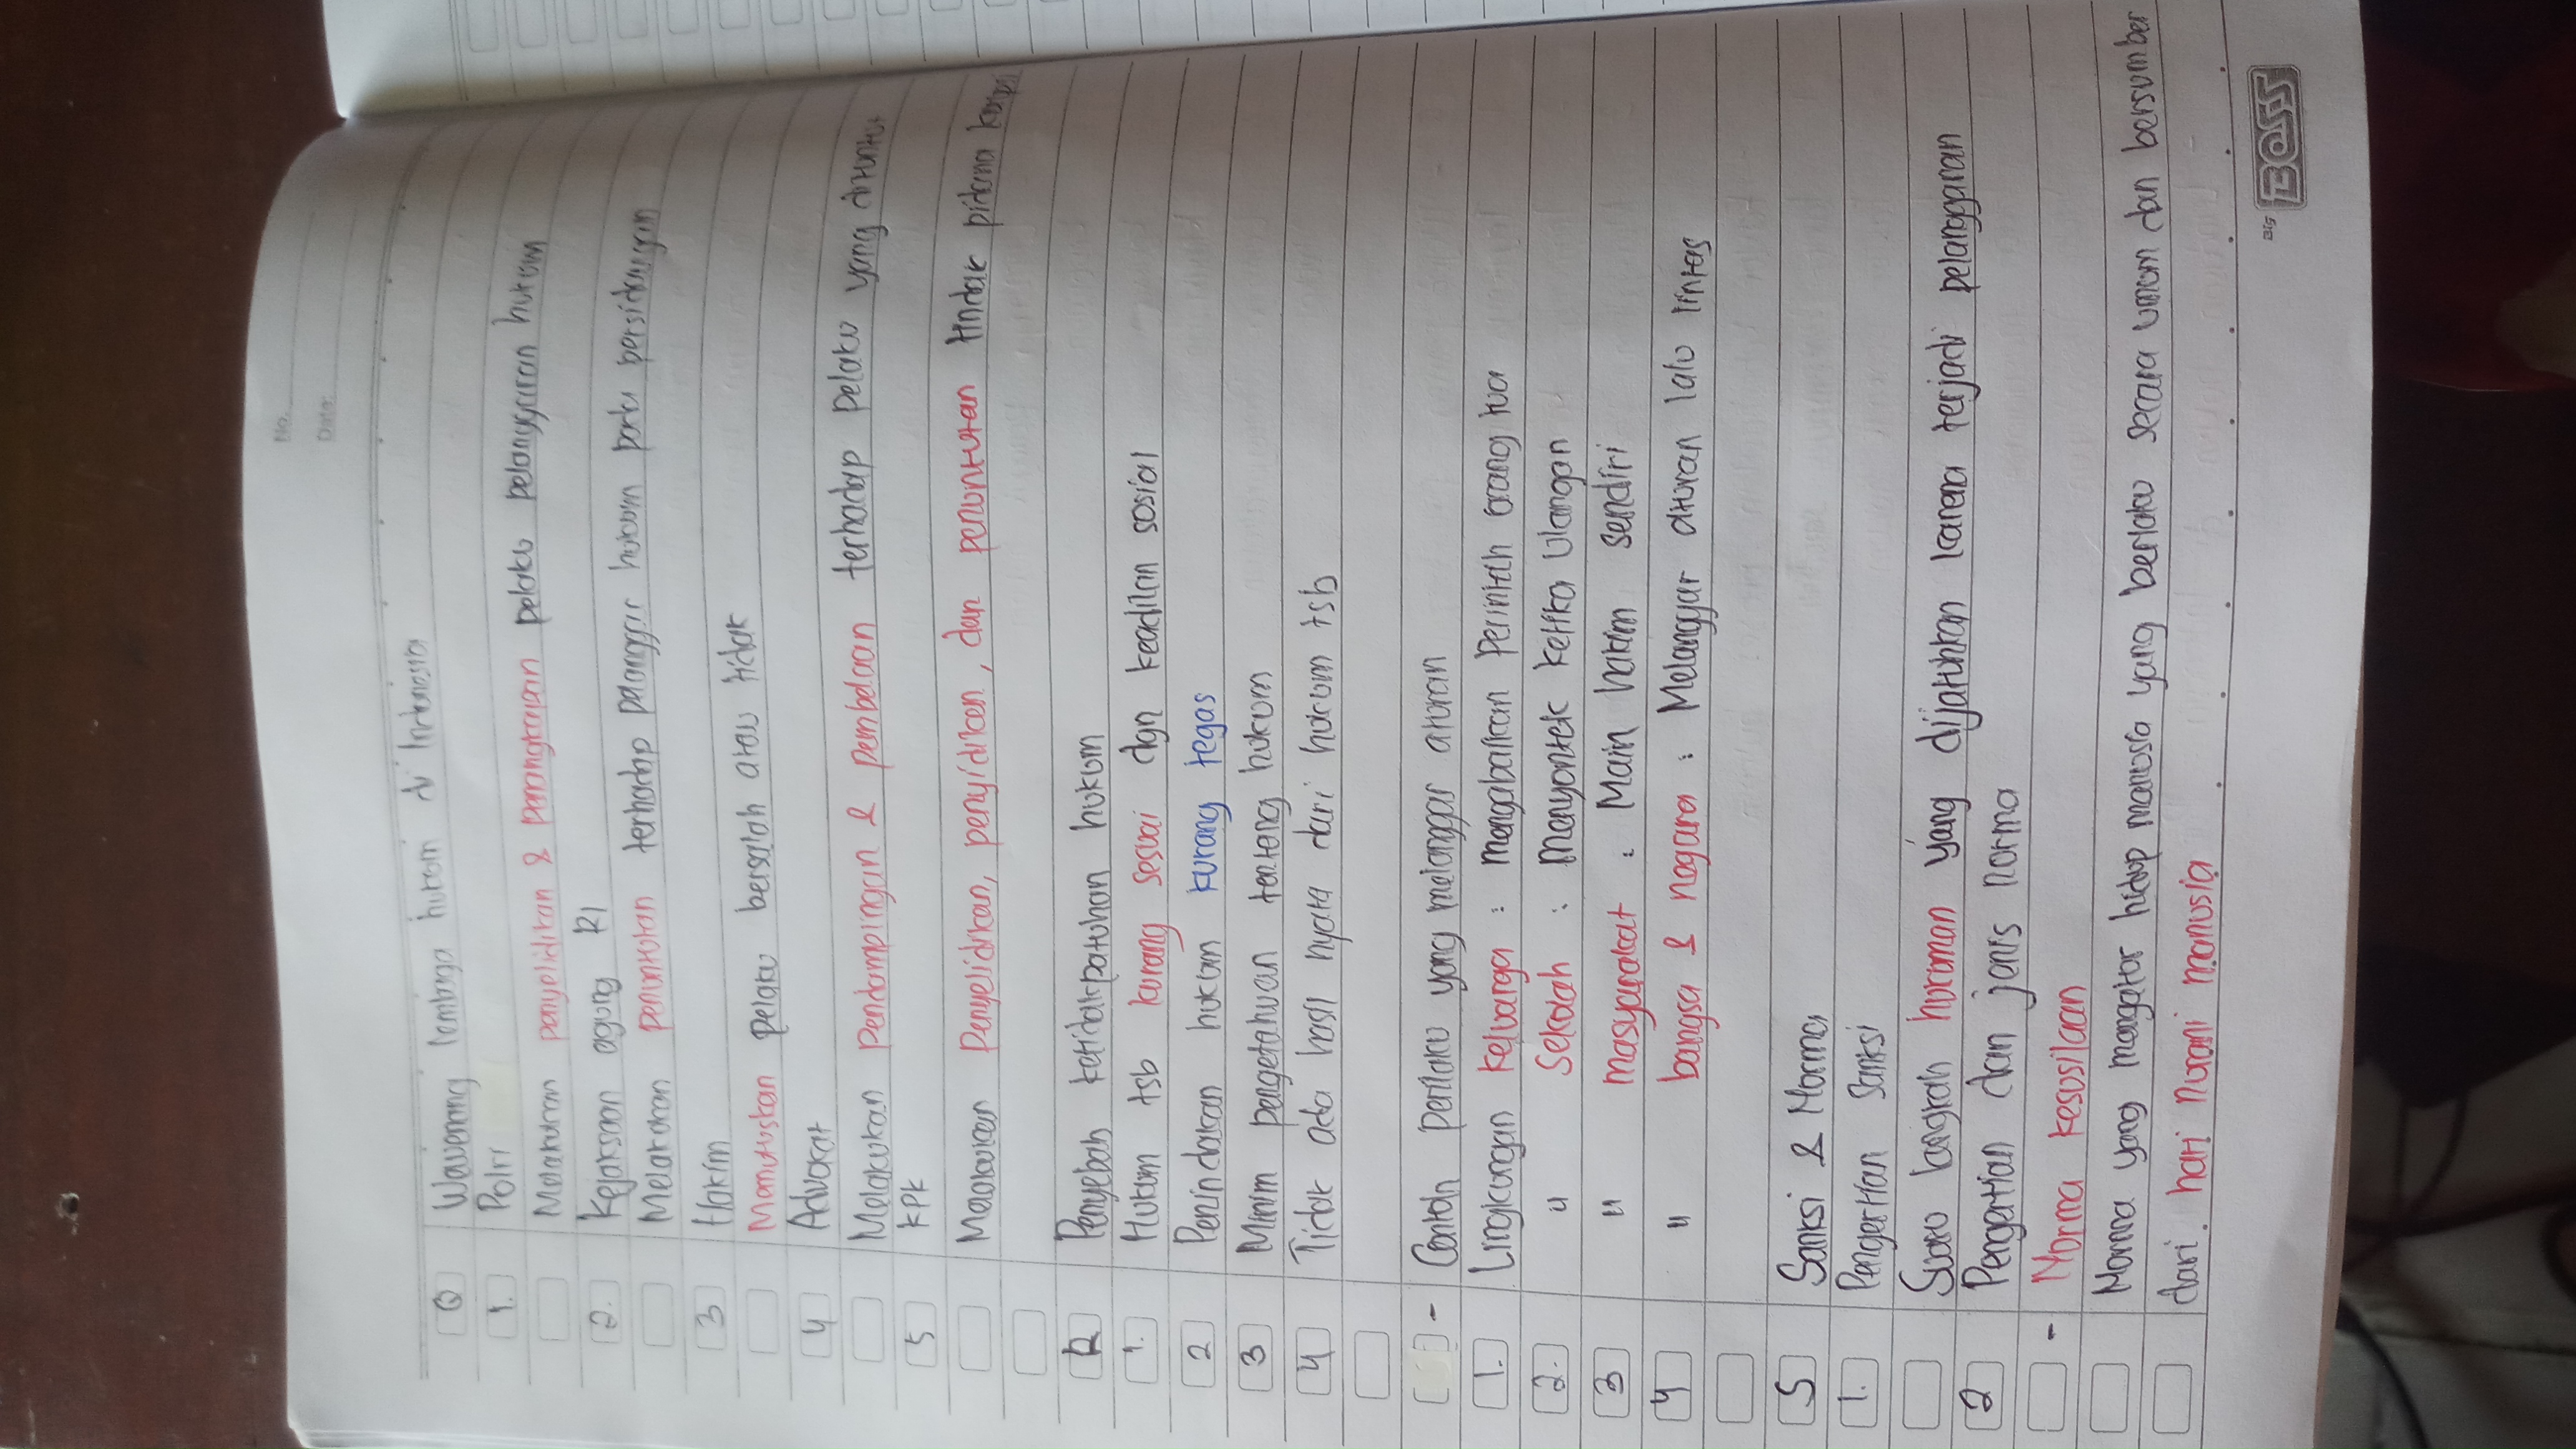 No.
Date:
Q Wewenang lembaga hukum di Indonesia
1. Polri
Melakukan penyelidikan & penangkapan pelaku pelanggaran hukum
2. Kejaksaan agung RI
Melakukan penuntutan terhadap pelanggar hukum pada persidangan
3 Hakim
Memutuskan pelaku bersalah atau tidak
4 Advokat
Melakukan Pendampingan & pembelaan terhadap pelaku yang dituntut
5 KPK
Melakukan Penyelidikan, penyidikan, dan penuntutan tindak pidana korupsi
R Penyebab ketidakpatuhan hukum
1. Hukum tsb kurang sesuai dgn keadilan sosial
2 Penindakan hukum kurang tegas
3 Minim pengetahuan tentang hukum
4 Tidak ada hasil nyata dari hukum tsb
- Contoh perilaku yang melanggar aturan
1. Lingkungan keluarga : mengabaikan Perintah orang tua
2. " Sekolah : Menyontek ketika Ulangan
3 " masyarakat : Main hakim sendiri
4 " bangsa & negara : Melanggar aturan lalu lintas
S Sanksi & Norma
1. Pengertian Sanksi
Suatu langkah hukuman yang dijatuhkan karena terjadi pelanggaran
2 Pengertian dan jenis norma
- Norma kesusilaan
Norma yang mengatur hidup manusia yang berlaku secara umum dan bersumber
dari hati nurani manusia
BIG BOSS